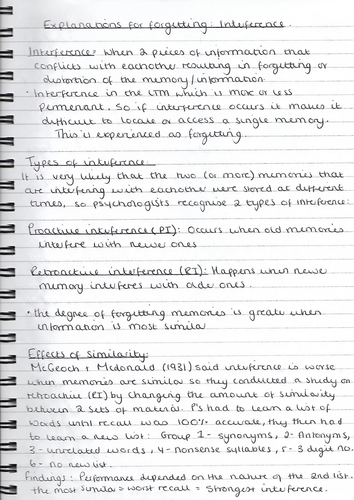 Explanations for forgetting: Interference.
Interference: When 2 pieces of information that
conflicts with eachother resulting in forgetting or
distortion of the memory/information
· Interference in the LTM which is more or less
permenant, so if interference occurs it makes it
difficult to locate or access a single memory.
This is experienced as forgetting.
Types of interference
It is very likely that the two (or more) memories that
are interfering with eachother were stored at different
times, so psychologists recognise 2 types of interference:
Proactive interference (PI): Occurs when old memories
interfere with newer ones
Retroactive interference (RI): Happens when newer
memory interferes with older ones.
• the degree of forgetting memories is greater when
information is most similar
Effects of Similarity:
McGeoch + Mcdonald (1931) said interference is worse
when memories are similar so they conducted a study on
retroactive (RI) by changing the amount of similarity
between 2 sets of material. P's had to learn a list of
words until recall was 100% accurate, they then had
to learn a new list: Group 1 - synonyms, 2- Antonyms,
3 - unrelated words, 4 - nonsense syllables, 5 - 3 digit no.
6 - no new list.
Findings: Performance depended on the nature of the 2nd list.
the most similar = worst recall = Strongest interference.